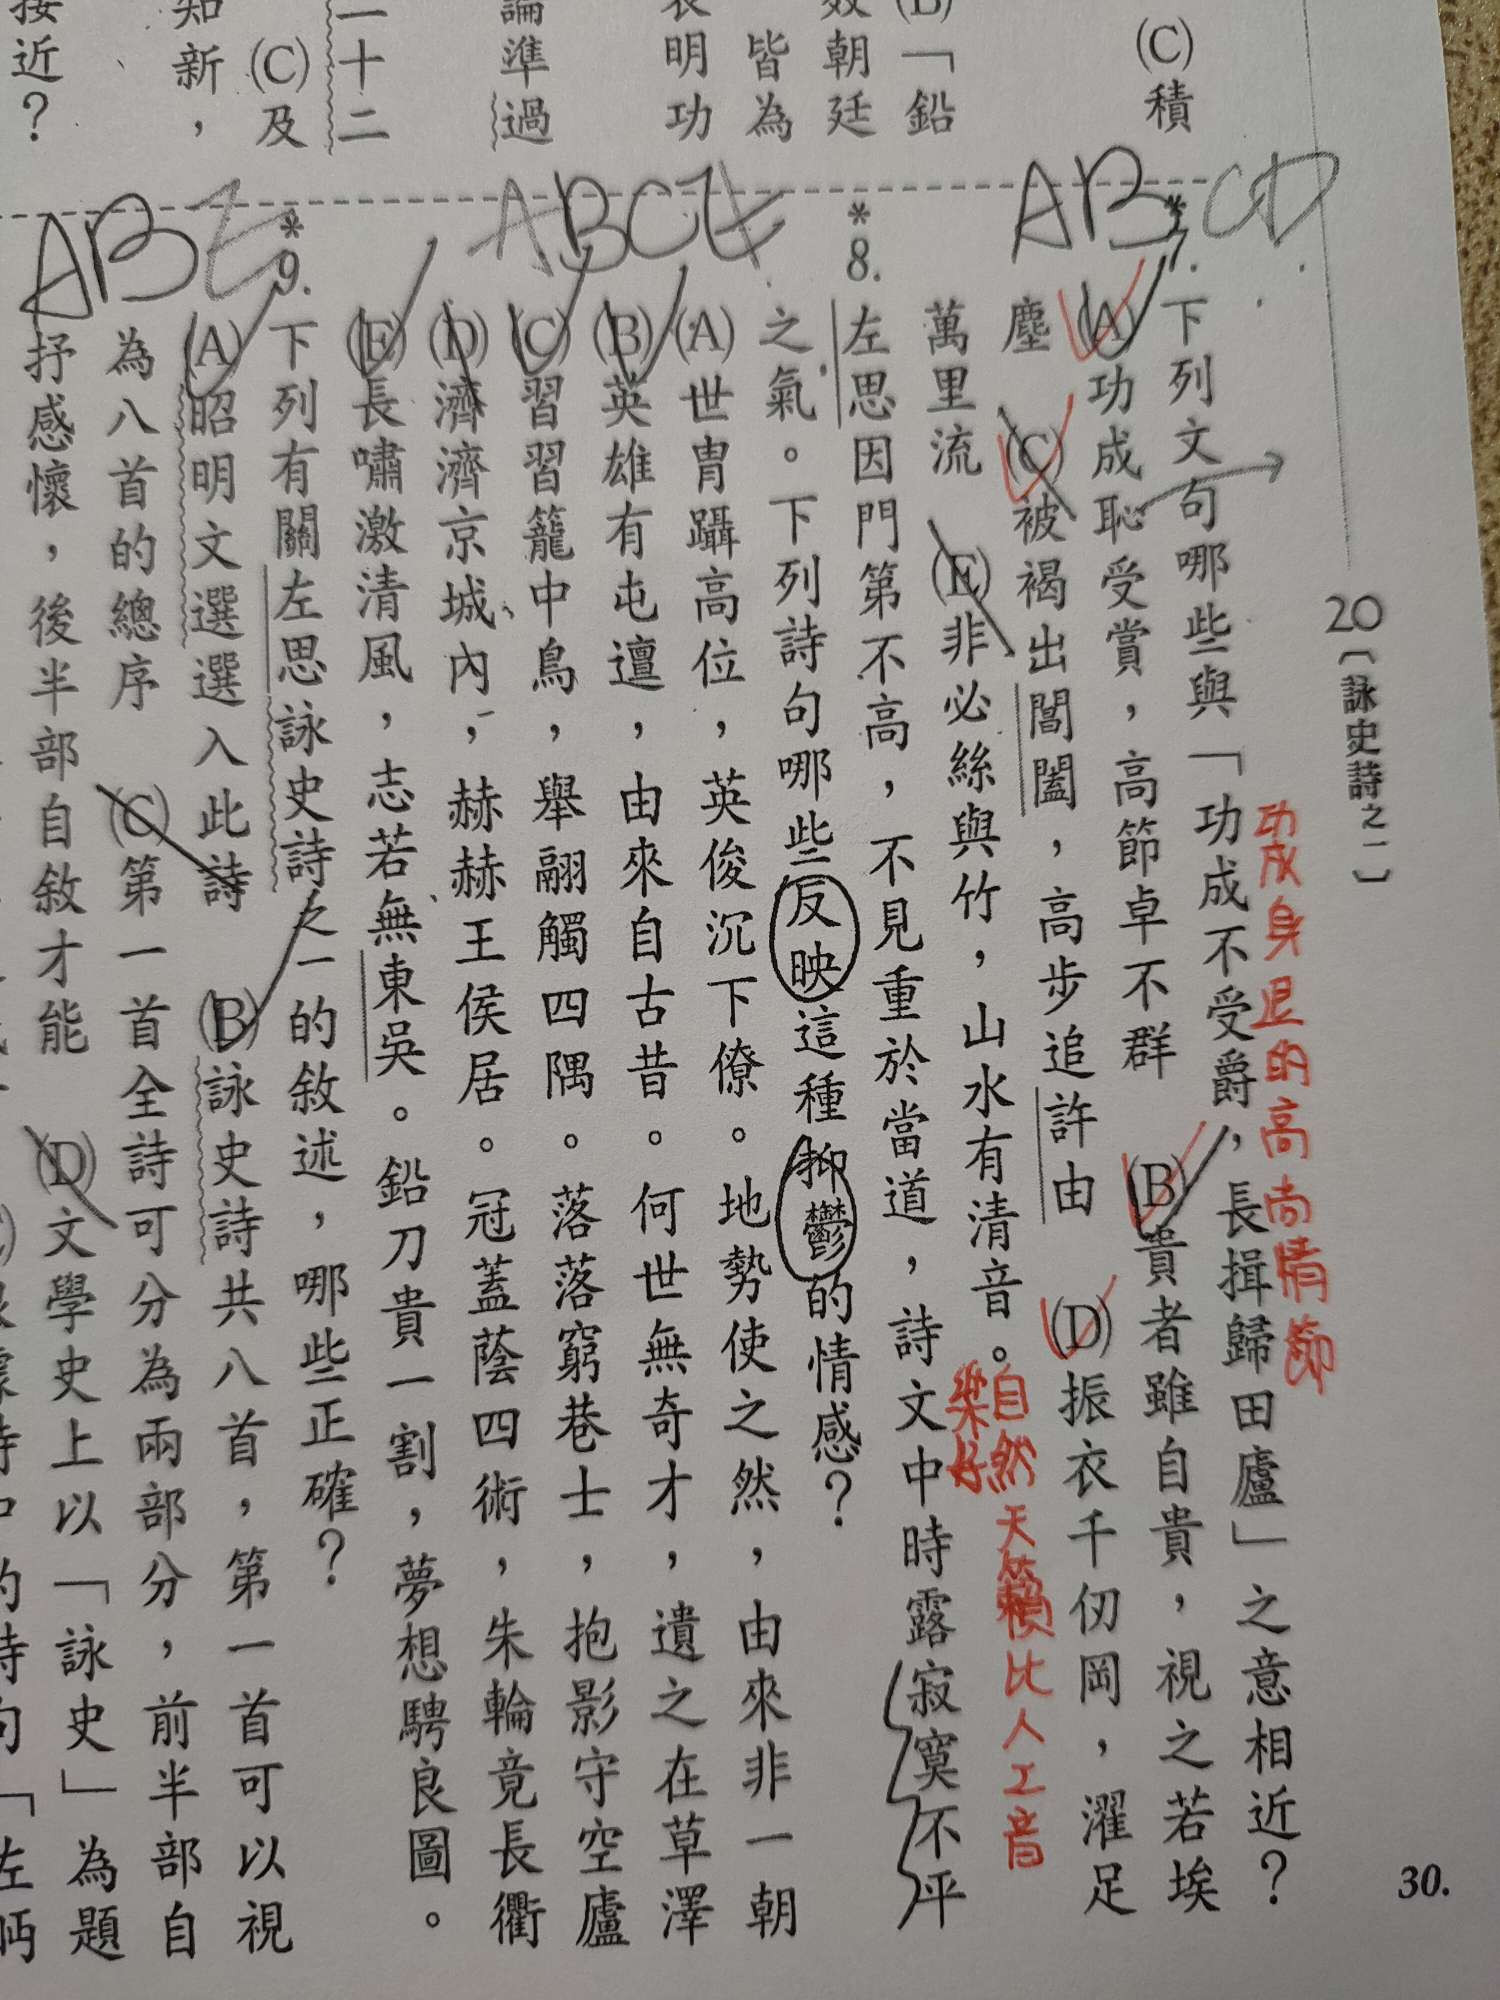 (C)積
(B)「鉛
效朝廷
皆為
表明功
論準過
一十二
(C)及
知新，
接近？
20〔詠史詩之一〕
30.
功成身退的高尚情節
ABCD
*7.下列文句哪些與「功成不受爵，長揖歸田廬」之意相近？
(A)功成恥受賞，高節卓不群　(B)貴者雖自貴，視之若埃
塵　(C)被褐出閶闔，高步追許由　(D)振衣千仞岡，濯足
萬里流　(E)非必絲與竹，山水有清音。
自然天籟比人工音
樂好
ABCE
*8.左思因門第不高，不見重於當道，詩文中時露寂寞不平
之氣。下列詩句哪些反映這種抑鬱的情感？
(A)世胄躡高位，英俊沉下僚。地勢使之然，由來非一朝
(B)英雄有屯邅，由來自古昔。何世無奇才，遺之在草澤
(C)習習籠中鳥，舉翮觸四隅。落落窮巷士，抱影守空廬
(D)濟濟京城內，赫赫王侯居。冠蓋蔭四術，朱輪竟長衢
(E)長嘯激清風，志若無東吳。鉛刀貴一割，夢想騁良圖。
ABE
*9.下列有關左思詠史詩之一的敘述，哪些正確？
(A)昭明文選選入此詩　(B)詠史詩共八首，第一首可以視
為八首的總序　(C)第一首全詩可分為兩部分，前半部自
抒感懷，後半部自敘才能　(D)文學史上以「詠史」為題